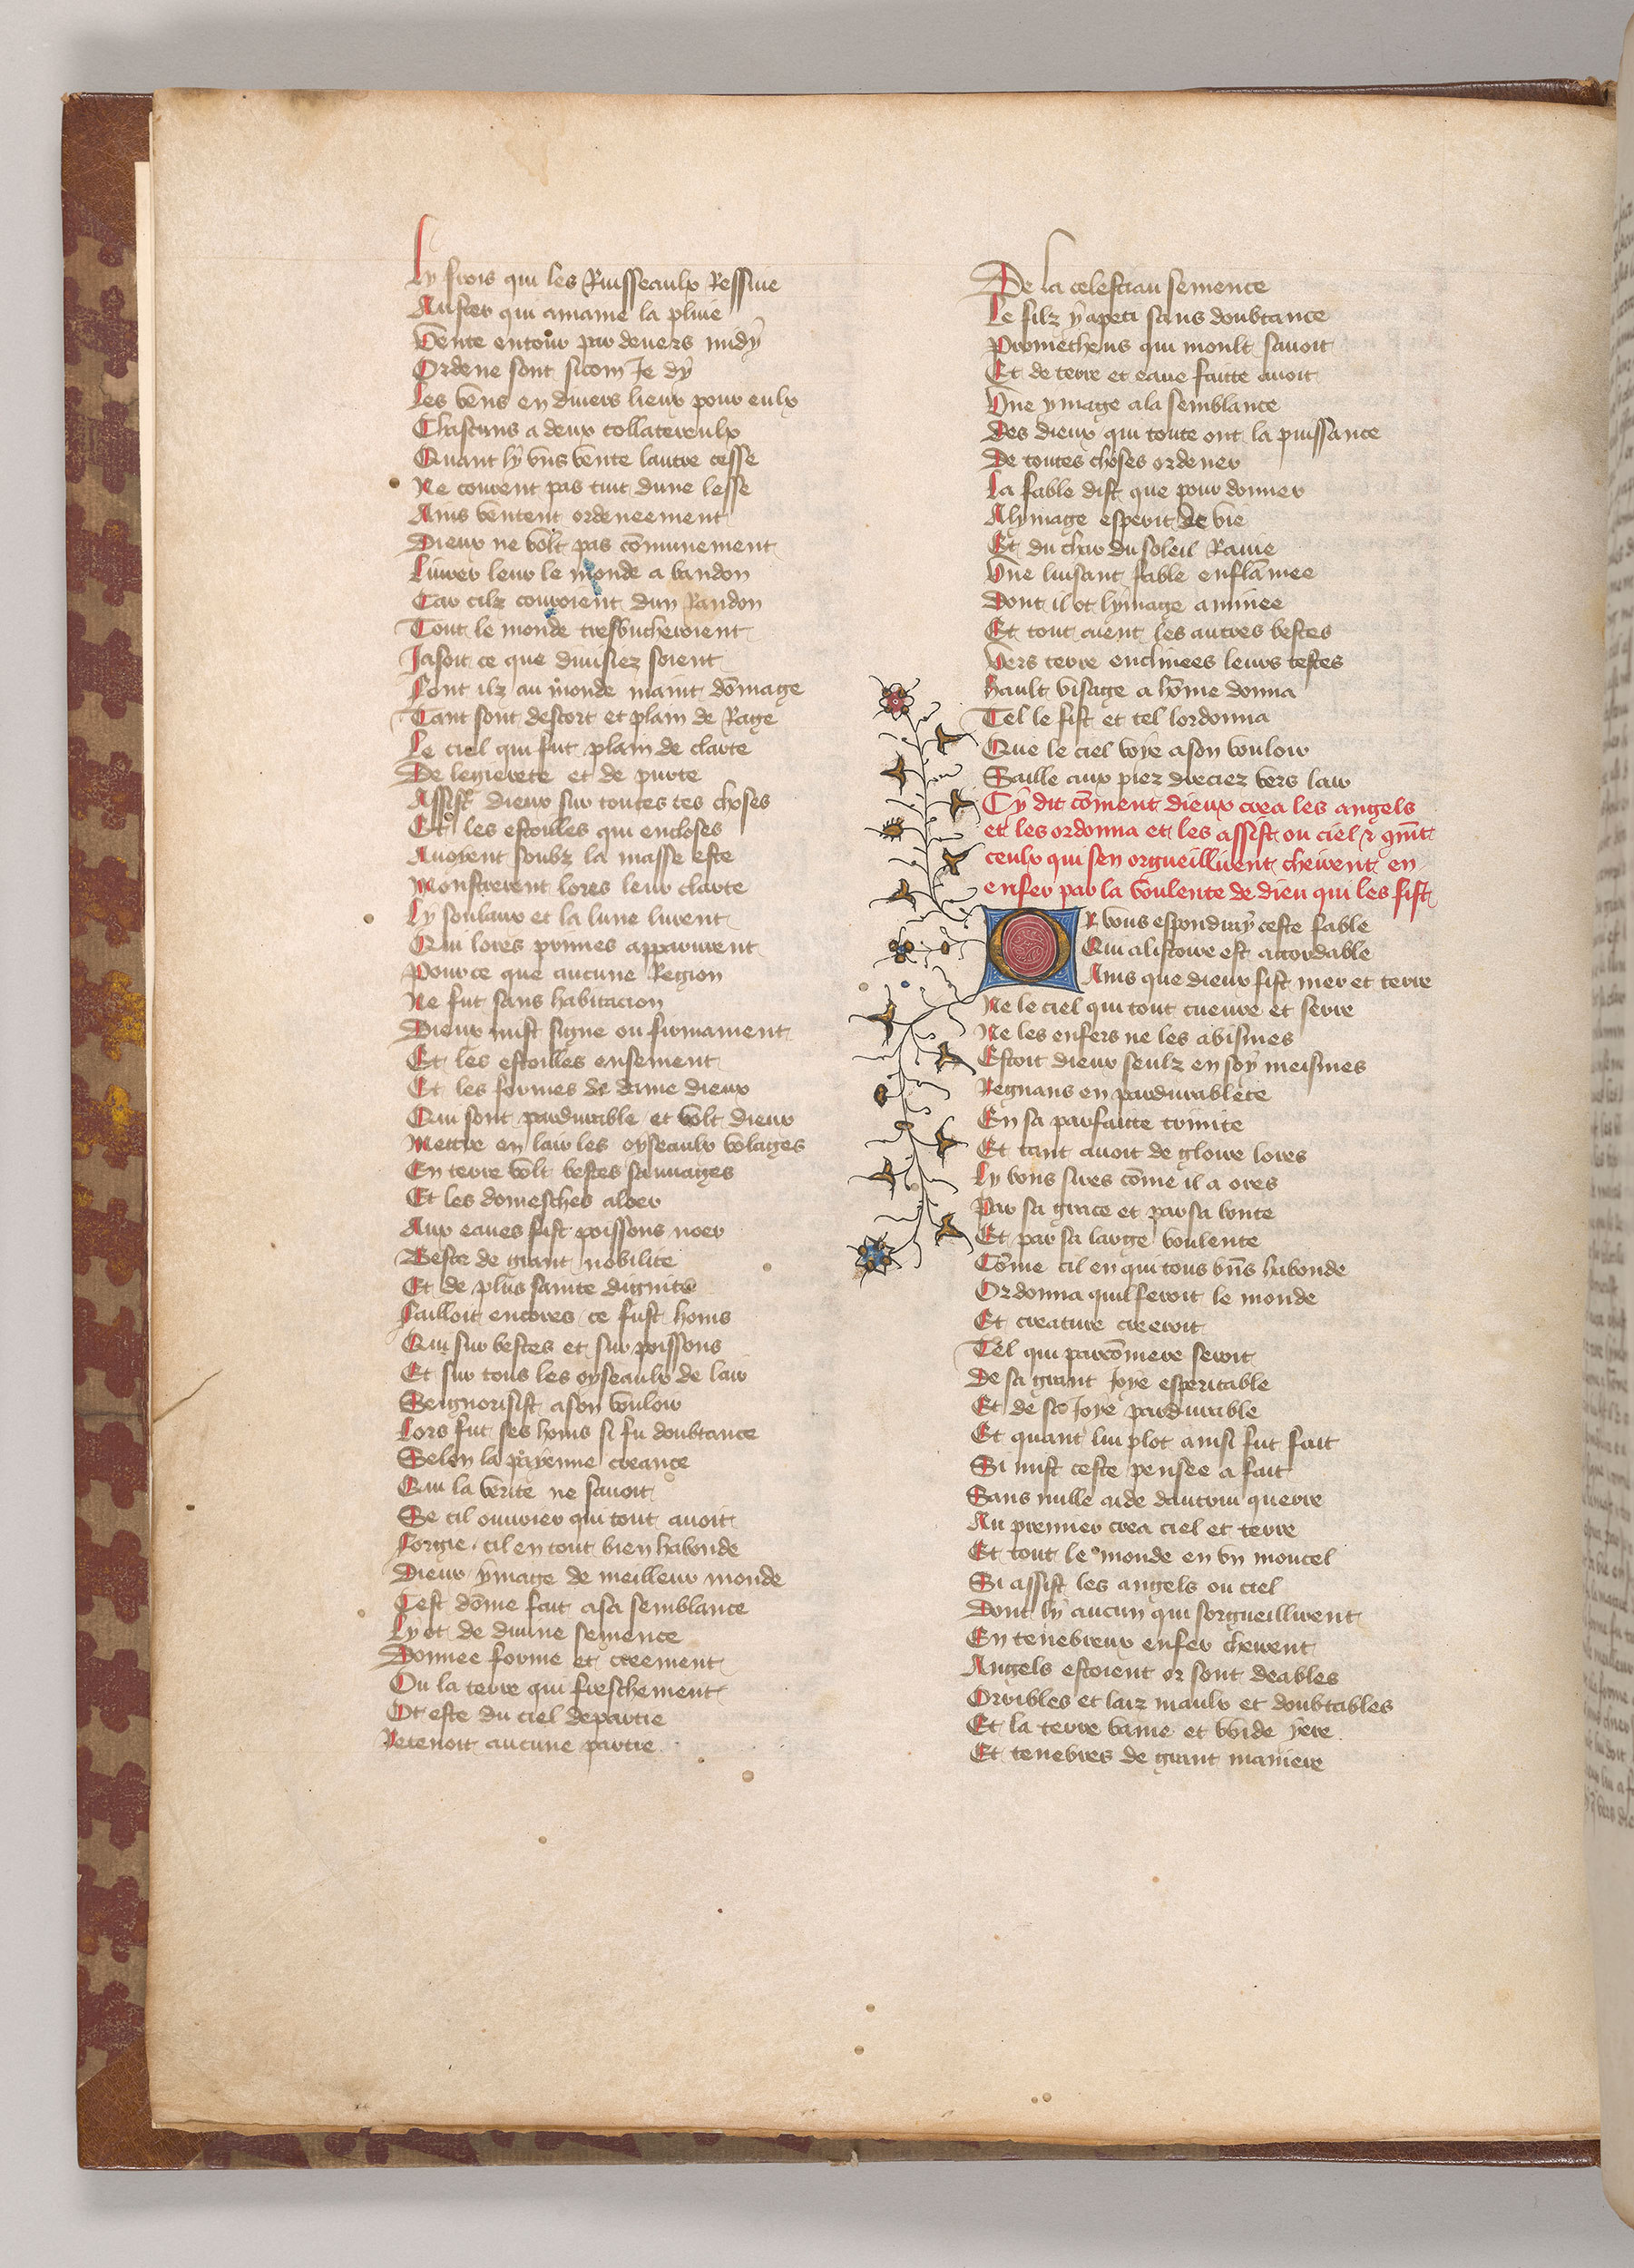 Ly frois qui les Ruisseaulx Ressuie
Auster qui amaine la pluie
Vente entour par devers midy
Ordene sont sicom Je dy
Les vens en divers lieux pour eulx
Chascuns a deux collatereulx
Quant ly vns vente lautre cesse
Ne courent pas tuit dune lesse
Ains ventent ordeneement
Dieux ne volt pas cōmunement
Livrer leur le monde a bandon
Car cilz couroient dun Randon
Tout le monde tresbucheroient
Jasoit ce que divisiez soient
Font ilz au monde maint dōmage
Tant sont descort et plain de Rage
Le ciel qui fut plain de clarte
De legierete et de purte
Assist dieux sur toutes ces choses
Et les estoilles qui encloses
Avoyent soubz la masse este
Monstrerent lores leur clarte
Ly soulaux et la lune luirent
Qui lores primes apparurent
Pource que aucune Region
Ne fut sans habitacion
Dieux mist signe ou firmament
Et les estoilles ensement
Et les formes de dame dieux
Qui sont pardurable et volt dieux
Mettre en lair les oyseaulx volages
En terre volt bestes sauvages
Et les domesches aloer
Aux eaues fist poissons noer
Beste de grant nobilite
Et de plus sainte dignite
Failloit encores ce fust homs
Qui sur bestes et sur poissons
Et sur tous les oyseaulx de lair
Seignorisist a son vouloir
Lors fut fes homs si fu doubtance
Selon la payenne creance
Qui la verite ne savoit
Se cil ouvrier qui tout avoit
Forgie cil en tout bien habonde
Dieux ymage de meilleur monde
Cest dōme fait a sa semblance
Ly ot de divine semence
Donnee forme et creement
Ou la terre qui freschement
Ot este du ciel departie
Retenoit aucune partie
De la celestiau semence
Le filz yapeti sans doubtance
Prometheus qui moult savoit
Et de terre et eaue faitte avoit
Vne ymage a la semblance
Des dieux qui toute ont la puissance
De toutes choses ordener
La fable dist que pour donner
A lymage esperit de vie
Et du char du soleil Ravie
Vne luisant fable enflāmee
Dont il ot lymage animee
Et tout aient les autres bestes
Vers terre enclinees leurs testes
Hault visage a hōme donna
Tel le fist et tel lordonna
Que le ciel voye a son vouloir
Saille aux piez dreciez vers lair
Cy dit cōment dieux crea les angels
et les ordonna et les assist ou ciel & 9mt
ceulx qui sen orgueillirent cheirent en
enfer par la voulente de dieu qui les fist
Or vous espondray ceste fable
Qui a listoire est accordable
Ains que dieux fist mer et terre
Ne le ciel qui tout cueuvre et serre
Ne les enfers ne les abismes
Estoit dieux seulz en soy meismes
Regnans en pardurablete
En sa parfaitte trinite
Et tant avoit de gloire lores
Ly vons sires cōme il a ores
Par sa grace et par sa bonte
Et par sa large voulente
Cōme cil en qui tous bn̄s habonde
Ordonna quil feroit le monde
Et creature creeroit
Tel qui parcōniere seroit
De sa grant Joye esperitable
Et de sa Joye pardurable
Et quant lui plot ainsi fut fait
Si mist ceste pensee a fait
Sans nulle aide dautrui querre
Au premier crea ciel et terre
Et tout le monde en vn moncel
Si assist les angels ou ciel
Dont ly aucun qui sorgueillirent
En tenebreux enfer cheirent
Angels estoient or sont deables
Orribles et laiz maulx et doubtables
Et la terre vaine et voide yere
Et tenebres de grant maniere